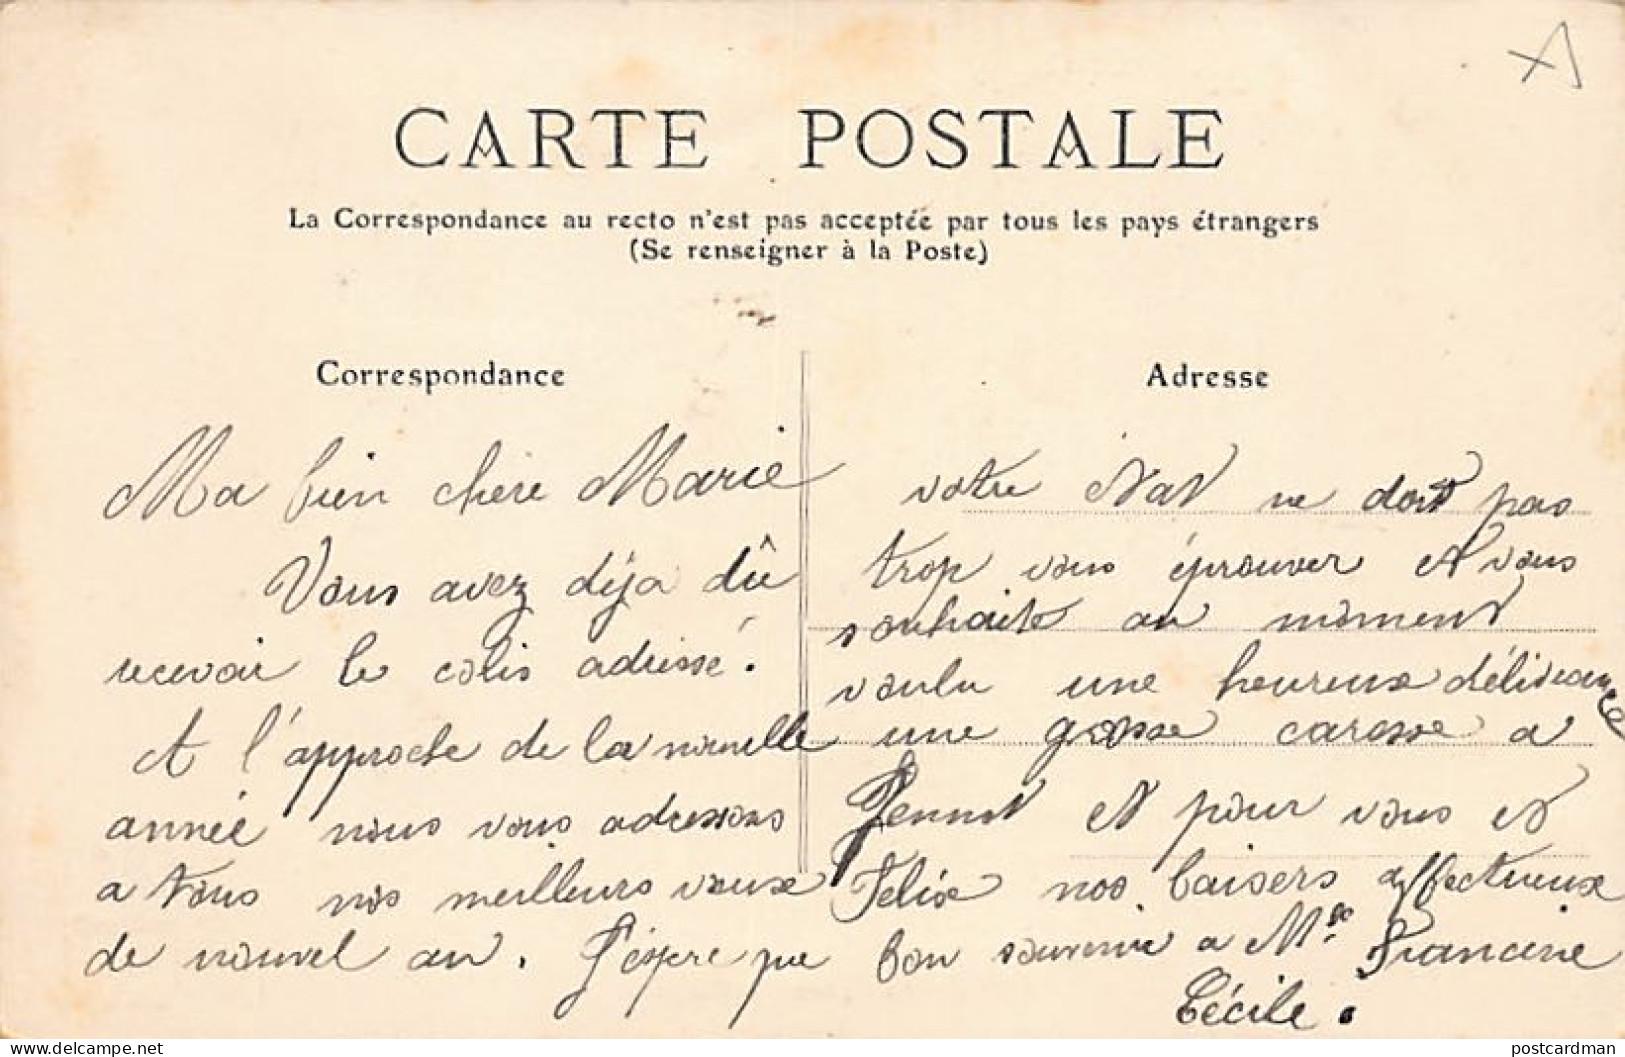 CARTE POSTALE
La Correspondance au recto n'est pas acceptée par tous les pays étrangers
(Se renseigner à la Poste)
Correspondance
Ma bien chère Marie
Vous avez déja dû
recevoir le colis adressé.
Et l'approche de la nouvelle
année nous vous adressons
a tous nos meilleurs vœux
de nouvel an. J'éspere que
Adresse
votre état ne doit pas
trop vous éprouver et vous
souhaite au moment
voulu une heureuse délivrance
une grosse caresse a
et pour vous et
Felix nos baisers affectueux
bon souvenir a Mlle Francine
Cécile.
delcampe.net
postcardman